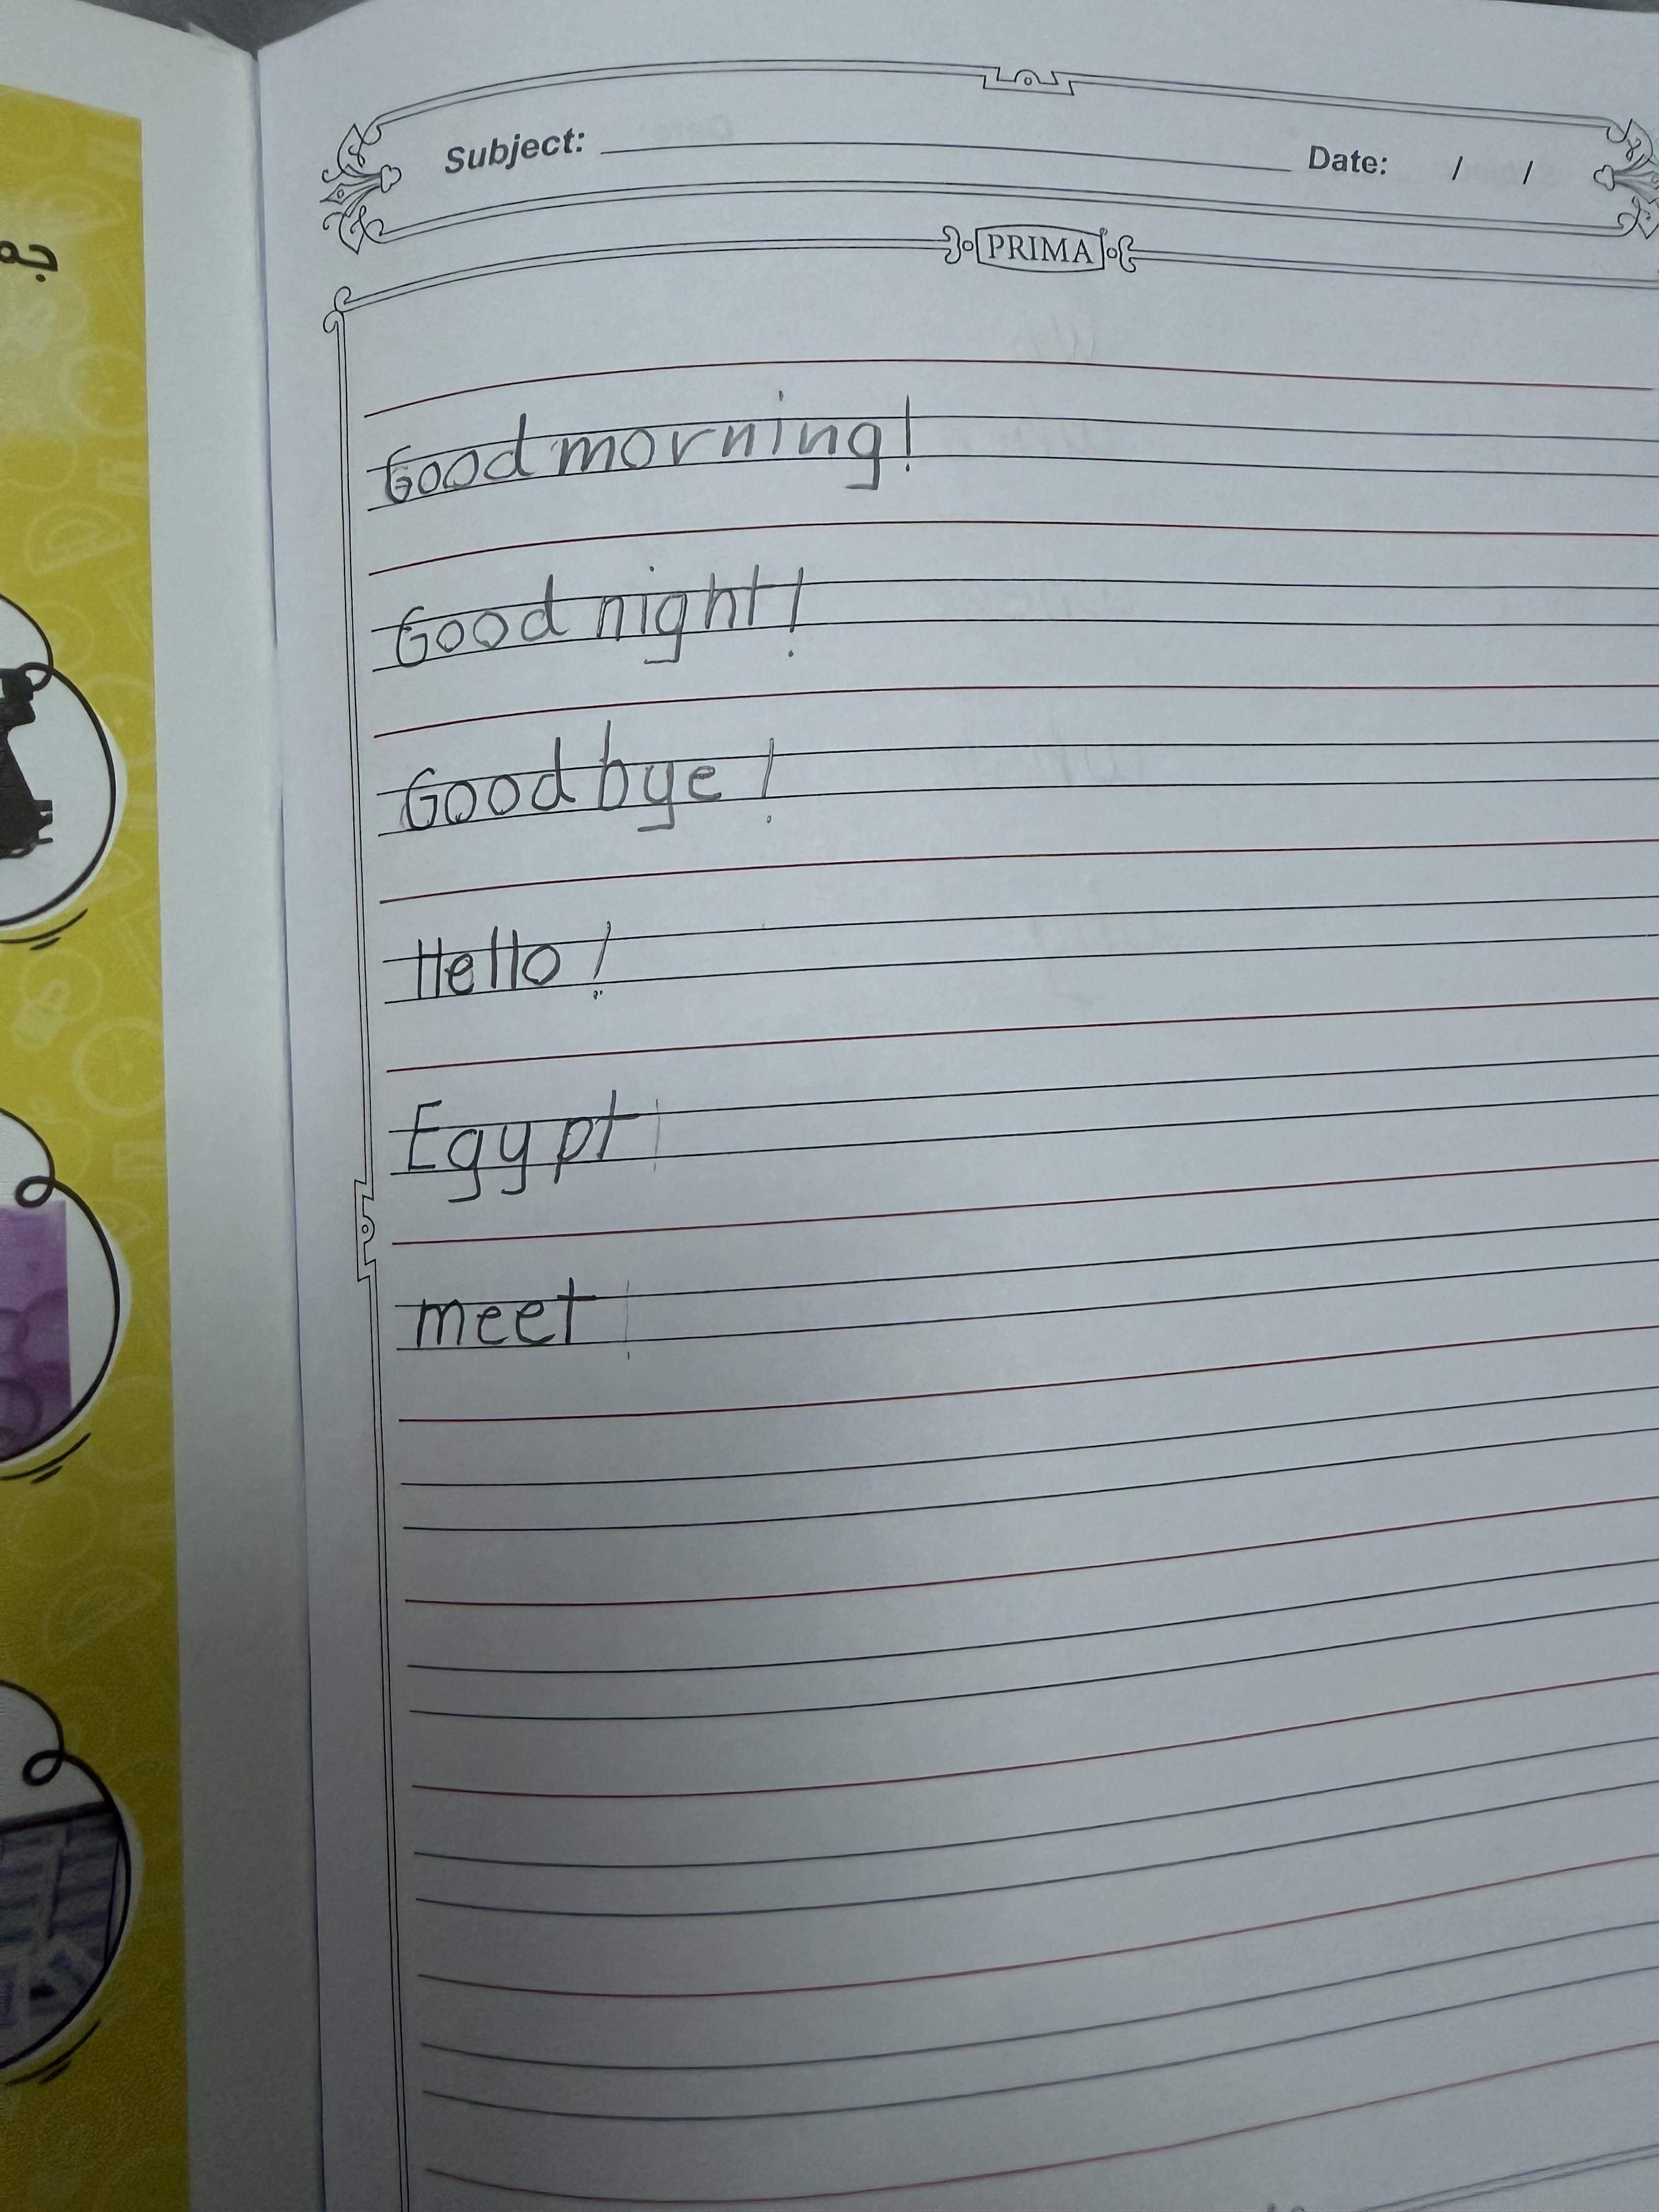 Subject: Date: / /
PRIMA
Good morning!
Good night!
Good bye!
Hello!
Egypt
meet